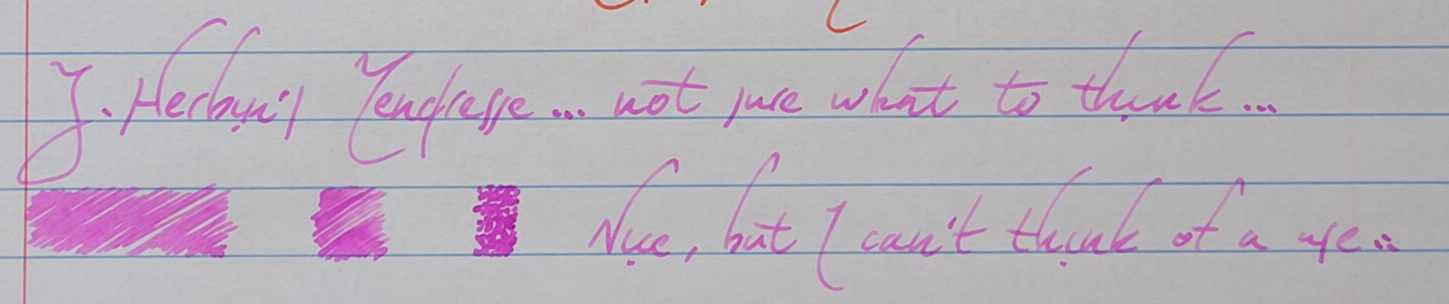 J. Herbin's Tendresse... not sure what to think...
Nice, but I can't think of a use..